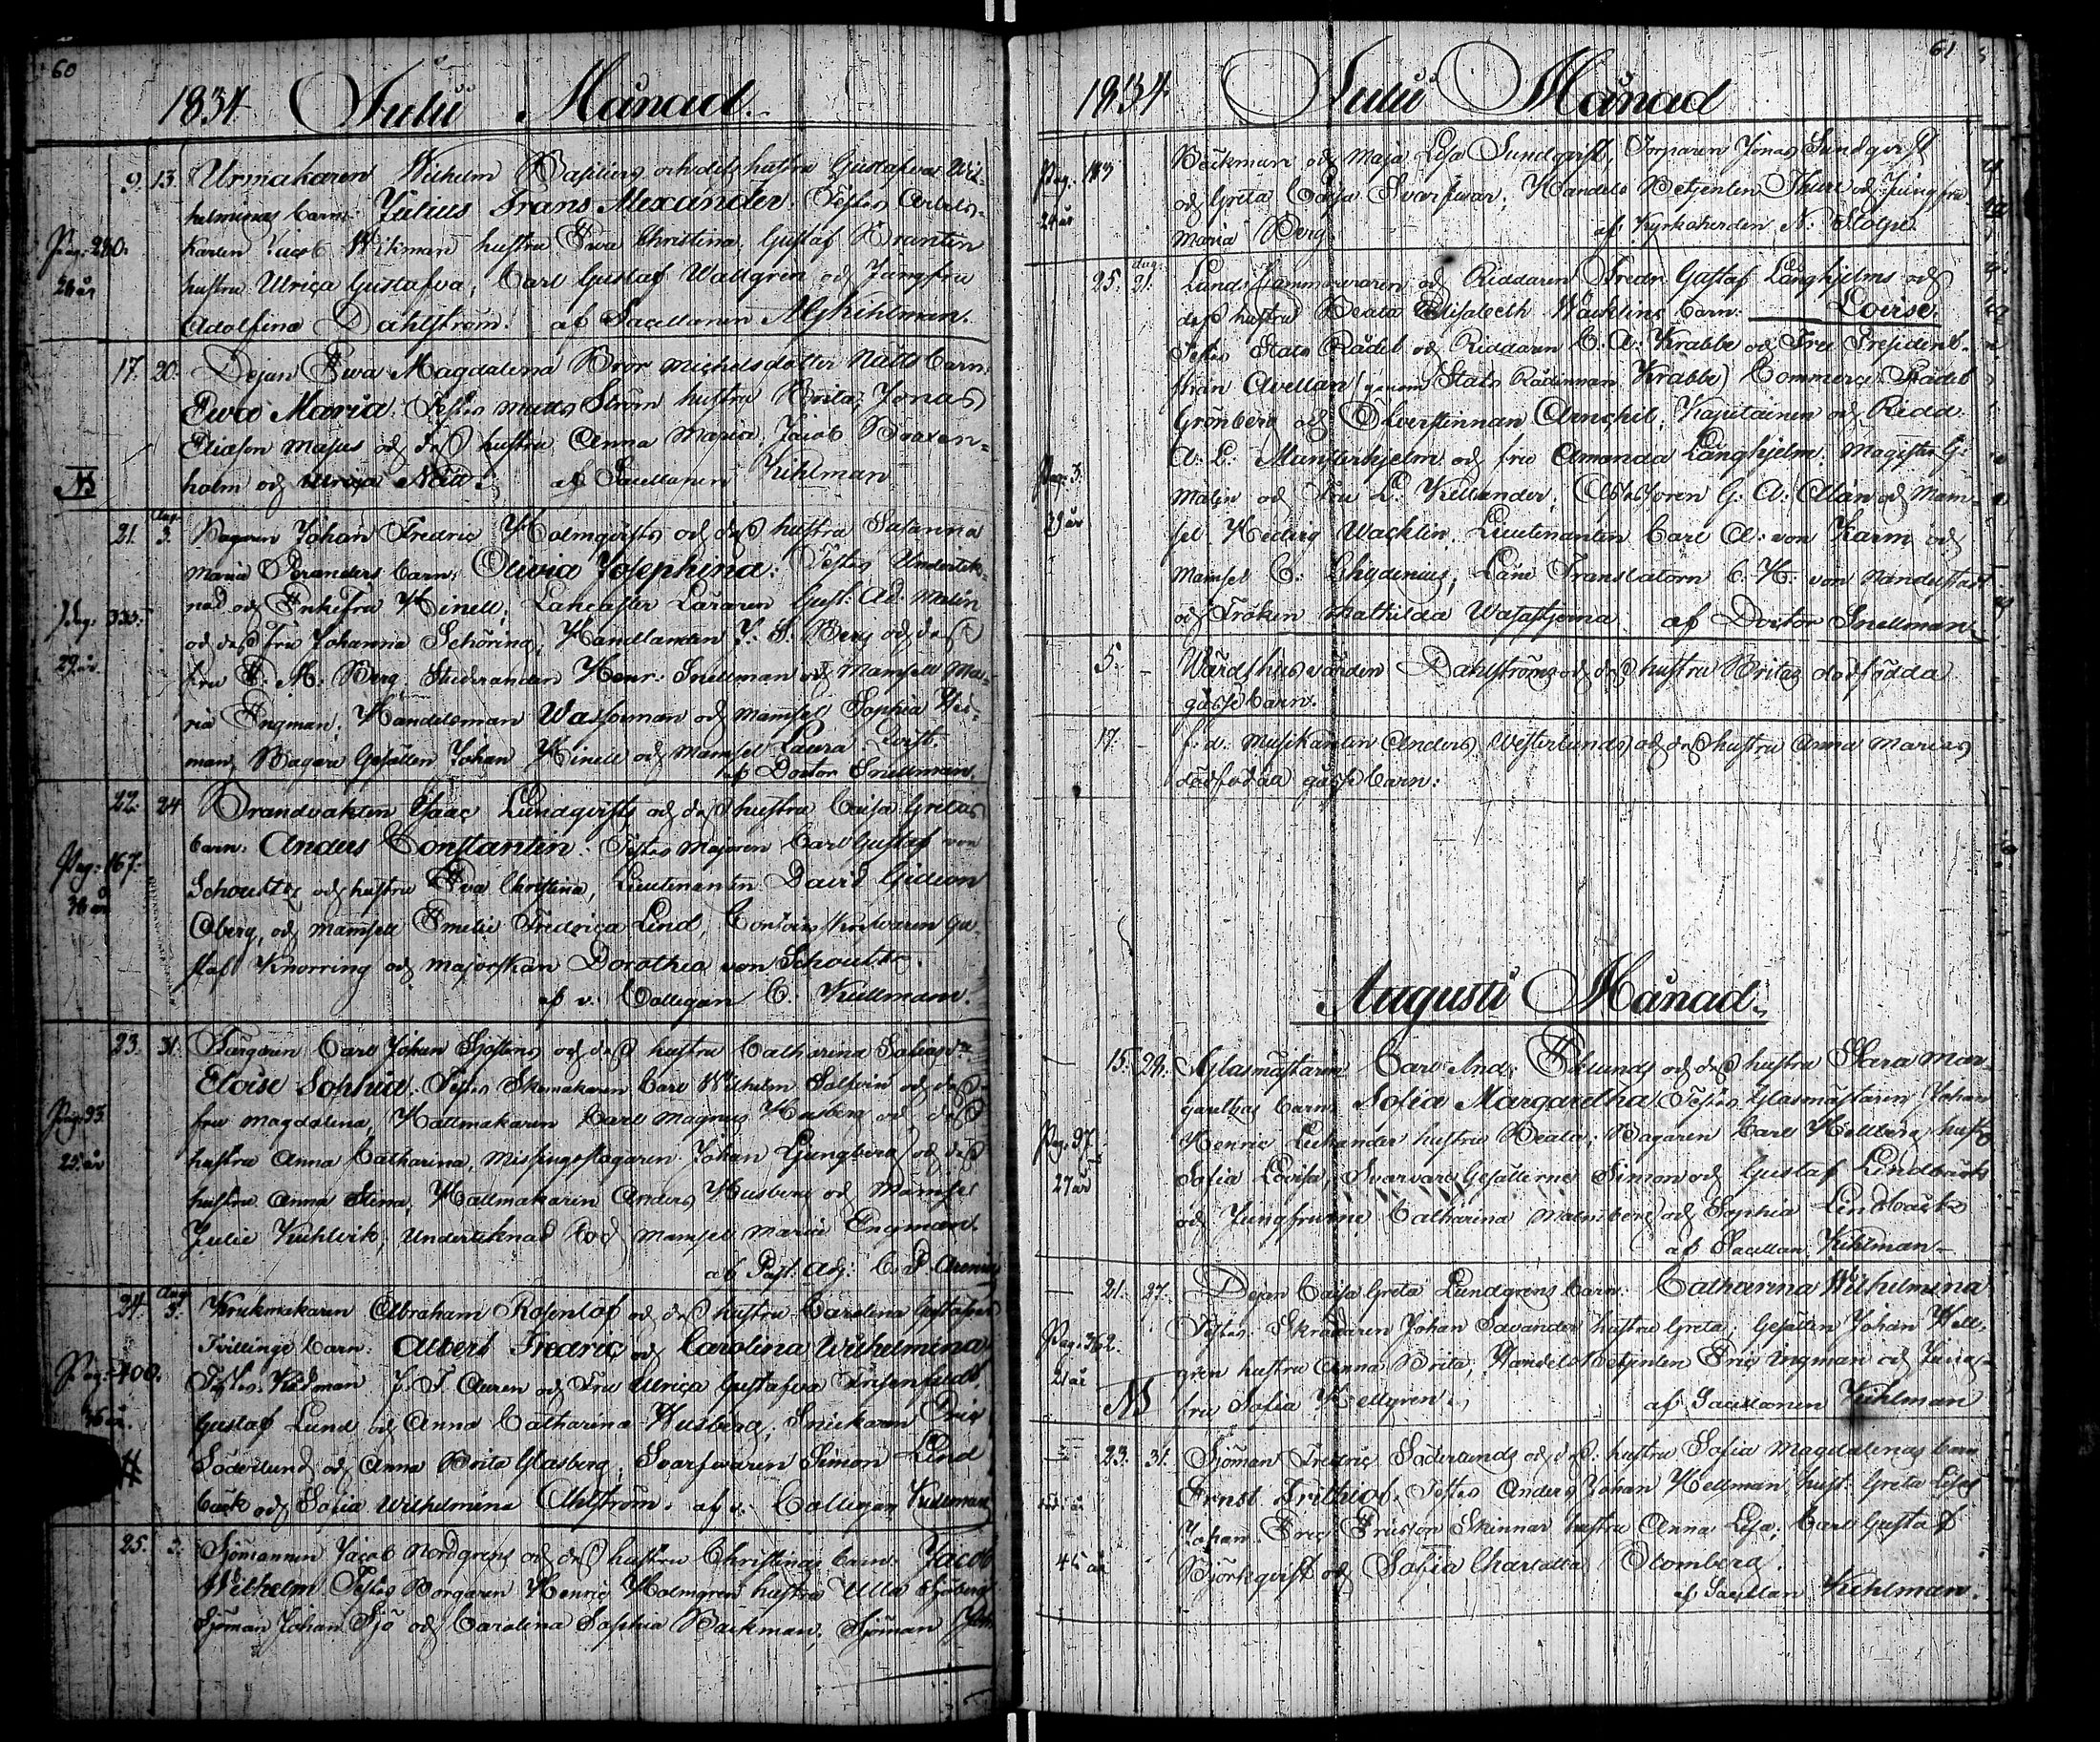 60
1834 Julii Månad.
9. 13. Urmakaren Wilhelm Basiliers och dess hustru Gustafvas Wil-
helminas barn. Julius Frans Alexander. Testes Arbets-
Karlen Jacob Wikman hustru Ewa Christina, Gustaf Brantin
Pag. 280.
26 år
hustru Ulrica Gustafva, Carl Gustaf Wallgren och Jungfru
Adolfina Dahlström. af Sacellanen Kihlman.
17. 20. Pejan Ewa Magdalena Bror Michelsdotter Nätts barn
Ewa Maria. Testes Matts Ström hustru Brita, Jonas
Eliason Majus och dess hustru Anna Maria, Jacob
holm och Ulrica Nätt. af Sacellanen Kihlman
21. Aug. 3. Bagaren Johan Fredric Holmqvists och dess hustru Susanna
Maria Beranders barn, Olivia Josephina. Testes Underteck-
nad och Enke Fru Hinell, Lancaster Läraren Gust. Ad. Malin
Pag. 335.
och dess Fru Johanna Schöring, Handlanden J. S. Berg och dess
29 år.
fru E. M. Berg Studeranden Henr. Snellman och Mamsell Ma-
ria Engman, Handelsman Wasserman och Mamsel Sophia Wes-
man, Bagare Gesällen Johan Hinell och Mamsel Laura
af Doctor Snellman.
22. 24 Brandvakten Isaac Lundqvists och dess hustru Caisa Gretas
barn. Anders Constantin. Testes Majoren Carl Gustaf von
Pag. 167.
36 år
Schoultz och hustru Ewa Christina, Lieutenanten David Gideon
Oberg, och Mamsell Emelie Fredrica Lind, Contoirs Skrifvaren Gu-
staf Knorring och Majorskan Dorothea von Schoultz.
af v. Collegan C. Kiellman.
23. 31. Färgaren Carl Johan Sjöstens och dess hustru Catharina
Eloise Sophia. Testes Skomakaren Carl Wilhelm Salfvin och dess
Pag. 93
fru Magdalena, Hattmakaren Carl Magnus Husberg och dess
25 år
hustru Anna Catharina, Missingsslagaren Johan Ljungberg och dess
hustru Anna Stina, Hattmakaren Anders Husberg och Mamsel
Julie Kuhlvik, Undertecknad och Mamsel Maria Engman.
af Past. Adj. C. P.
24. Aug. 3. Krukmakaren Abraham Rosenlöf och dess hustru Carolina Gustafvas
Tvillinge barn. Albert Fredric och Carolina Wilhelmina
Pag. 400.
Testes. Rådman J. F. Auren och Fru Ulrica Gustafva
36 år.
Gustaf Lund och Anna Catharina Husberg, Snickaren Eric
Söderlund och Anna Brita Glasberg, Svarfvaren Simon Lind
bäck och Sofia Wilhelmina Ahlström. af v. Collegan Kiellman
25. 3. Sjömannen Jacob Nordgrens och dess hustru Christinas barn. Jacob
Wilhelm. Testes Borgaren Henric Holmgren hustru Ulla Sjöberg
Sjöman Johan Sjö och Carolina Sophia Backman, Sjöman
61
1834. Julii Månad
Pag. 183
Beckman och Maja Lisa Sundqvist, Torparen Jonas Sundqvist
24 år
och Greta Caisa Svarfvar, Handels Betjenten Thure och Jungfru
Maria Berg af Kyrkoherden N. Stolpe.
25. Aug. 21. Lands Cammereraren och Riddaren Fredr. Gustaf Långhjelms och
dess hustru Beata Elisabeth Wacklins barn. Lovise.
Testes Stats Rådet och Riddaren C. A. Krabbe och Fru President-
skan Avellan (genom Stats Rådinnan Krabbe) Commerce Rådet
Grönberg och Öfverstinnan Arnchil, Kapitainen och Ridd.
A. L. Munsterhjelm och fru Amanda Långhjelm, Magister G.
Pag. 3.
29 år
Malin och Fru L. Kellander, G. A. Allan och Mam-
sel Hedvig Wacklin, Lieutenanten Carl A. von Karm och
Mamsel C. Chydenius, Läne Translatorn C. H. von
och Fröken Mathilda Wasastjerna. af Doctor Snellman
5. - Wärdshusvärden Dahlströms och dess hustru Britas dödfödda
gåsse barn.
17. - f. d. Musikanten Anders Westerlunds och dess hustru Anna Marias
dödfödda gåsse barn.
Augusti Månad.
15. 28. Glasmästaren Carl And. Eklunds och dess hustru Sara Mar-
garethas barn. Sofia Margaretha. Testes Glasmästaren Johan
Pag. 97.
Henric Lithander hustru Beata, Bagaren Carl Hellberg hustru
27 år
Sofia Lovisa, Svarvare Gesällerne Simon och Gustaf Lindbäck
och Jungfrurne Catharina Malmberg och Sophia Lindbäck
af Sacellan. Kihlman
21. 27. Pejan Caisa Greta Lundgrens barn. Catharina Wilhelmina
Pag. 362.
Testes. Skräddaren Johan Savander hustru Greta, Gesällen Johan Well-
21 år
gren hustru Anna Brita, Handels Betjenten Eric Ingman och Jung-
fru Sofia Hellgren. af Sacellanen Kihlman
23. 31. Sjöman Fredric Söderlunds och dess hustru Sofia Magdalenas barn
Ernst Frithiof. Testes Anders Johan Hellman hust. Greta Lisa,
Johan Eric Ericsson Skinnar hustru Anna Lisa, Carl Gustaf
45 år
Björkqvist och Sofia Charlotta Blomberg.
af Sacellan Kihlman.